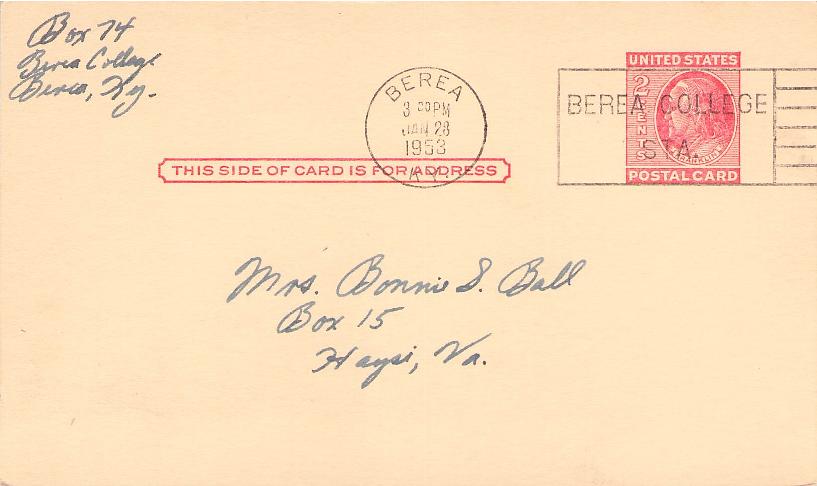 Box 74
Berea College
Berea, Ky.
BEREA
3 00 PM
JAN 28
1953
KY.
UNITED STATES
2 CENTS
POSTAL CARD
BEREA COLLEGE
STA.
THIS SIDE OF CARD IS FOR ADDRESS
Mrs. Bonnie S. Ball
Box 15
Haysi, Va.